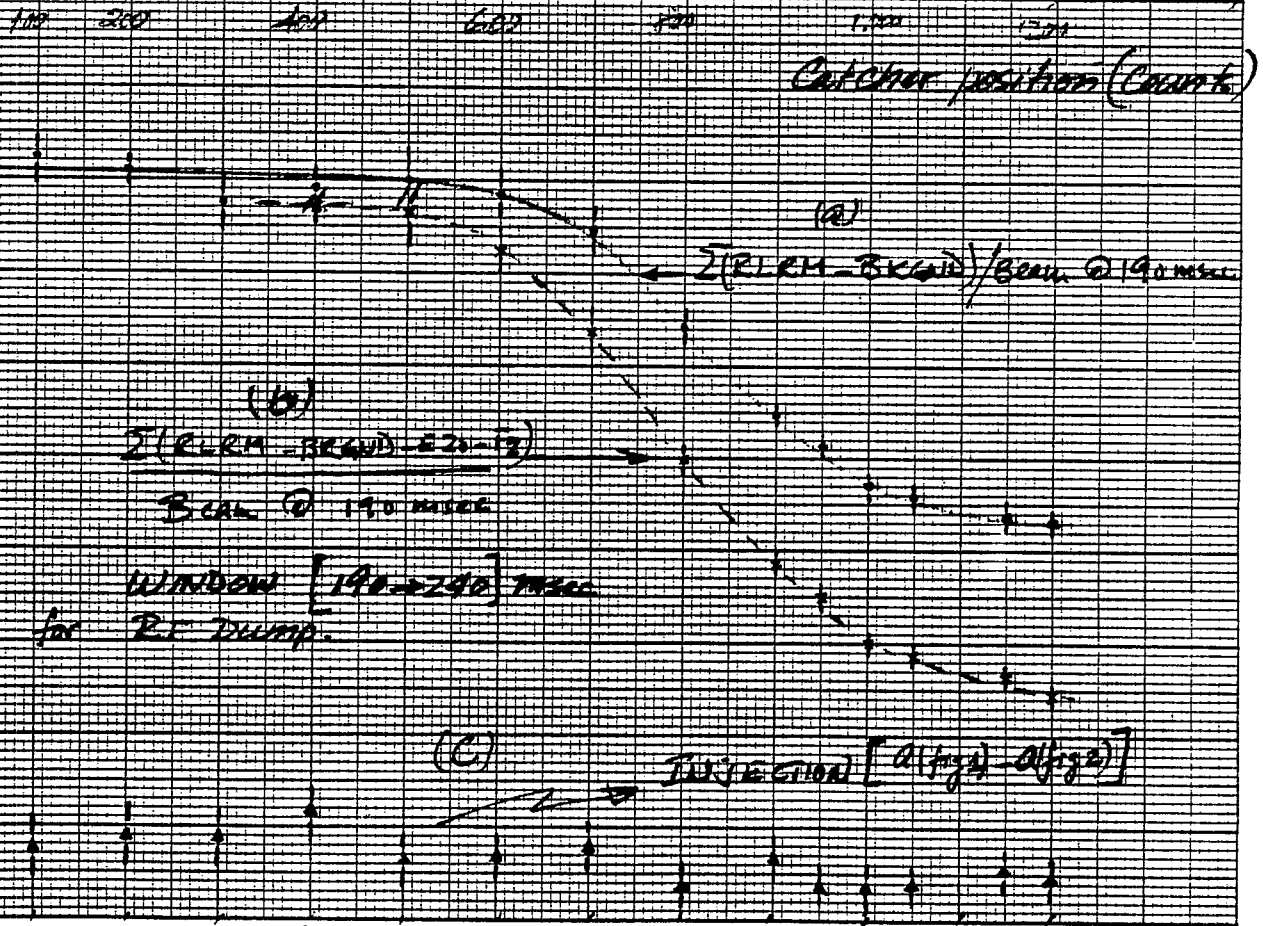 100 200 400 600 800 1,000 1200
Catcher position (Counts)
(a)
Σ(RLRM - BKGND)/Beam @ 190 msec
(b)
Σ(RLRM - BKGND - E20 -
Beam @ 190 msec
WINDOW [190→240] msec
for RF Dump.
(C)
INJECTION [a(fig1) - a(fig2)]